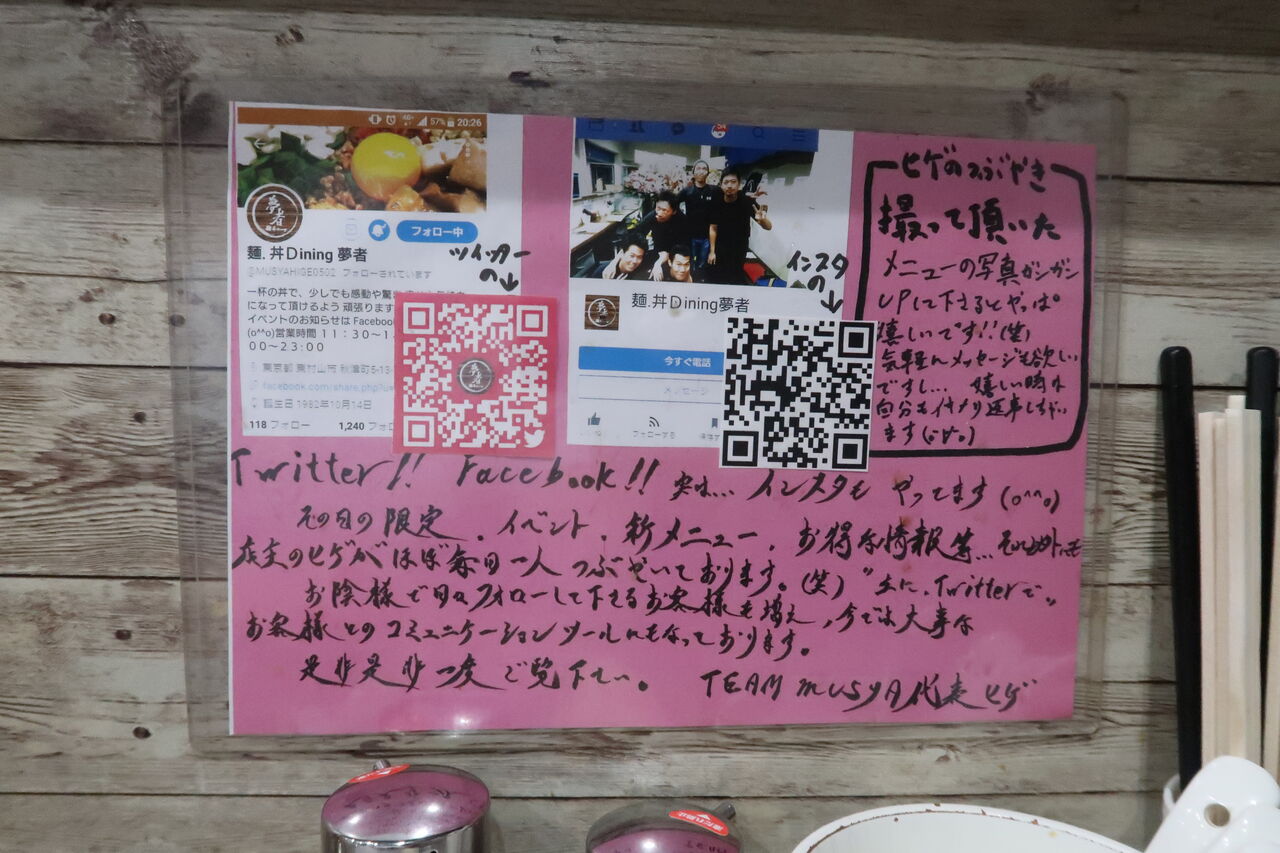 57% 20:26
夢者
フォロー中
麺.丼Dining 夢者
@MUSYAHIGE0502 フォローされています
一杯の丼で、少しでも感動や驚
になって頂けるよう 頑張ります
イベントのお知らせは Facebook
(o^^o)営業時間 11:30〜1
00〜23:00
東京都 東村山市 秋津町5-13
facebook.com/share.php?u=
誕生日 1982年10月14日
118 フォロー 1,240 フォロ
ツイッターの↓
麺.丼Dining夢者
今すぐ電話
メッセージ
フォローする
インスタの↓
ヒゲのつぶやき
撮って頂いた
メニューの写真ガンガン
UPして下さるとやっぱ
嬉しいです!!(笑)
気軽にメッセージも欲しい
ですし... 嬉しい時は
自分もイイネ
ます
Twitter!! Facebook!! 実は... インスタも やってます(o^^o)
その日の限定、イベント、新メニュー、お得な情報等...それ以外にも
店主のヒゲがほぼ毎日一人つぶやいております。(笑) "主に、Twitterで"
お陰様で日々フォローして下さるお客様も増え、今では大事な
お客様とのコミュニケーションツールにもなっております。
是非是非一度ご覧下さい。 TEAM MUSYA代表ヒゲ